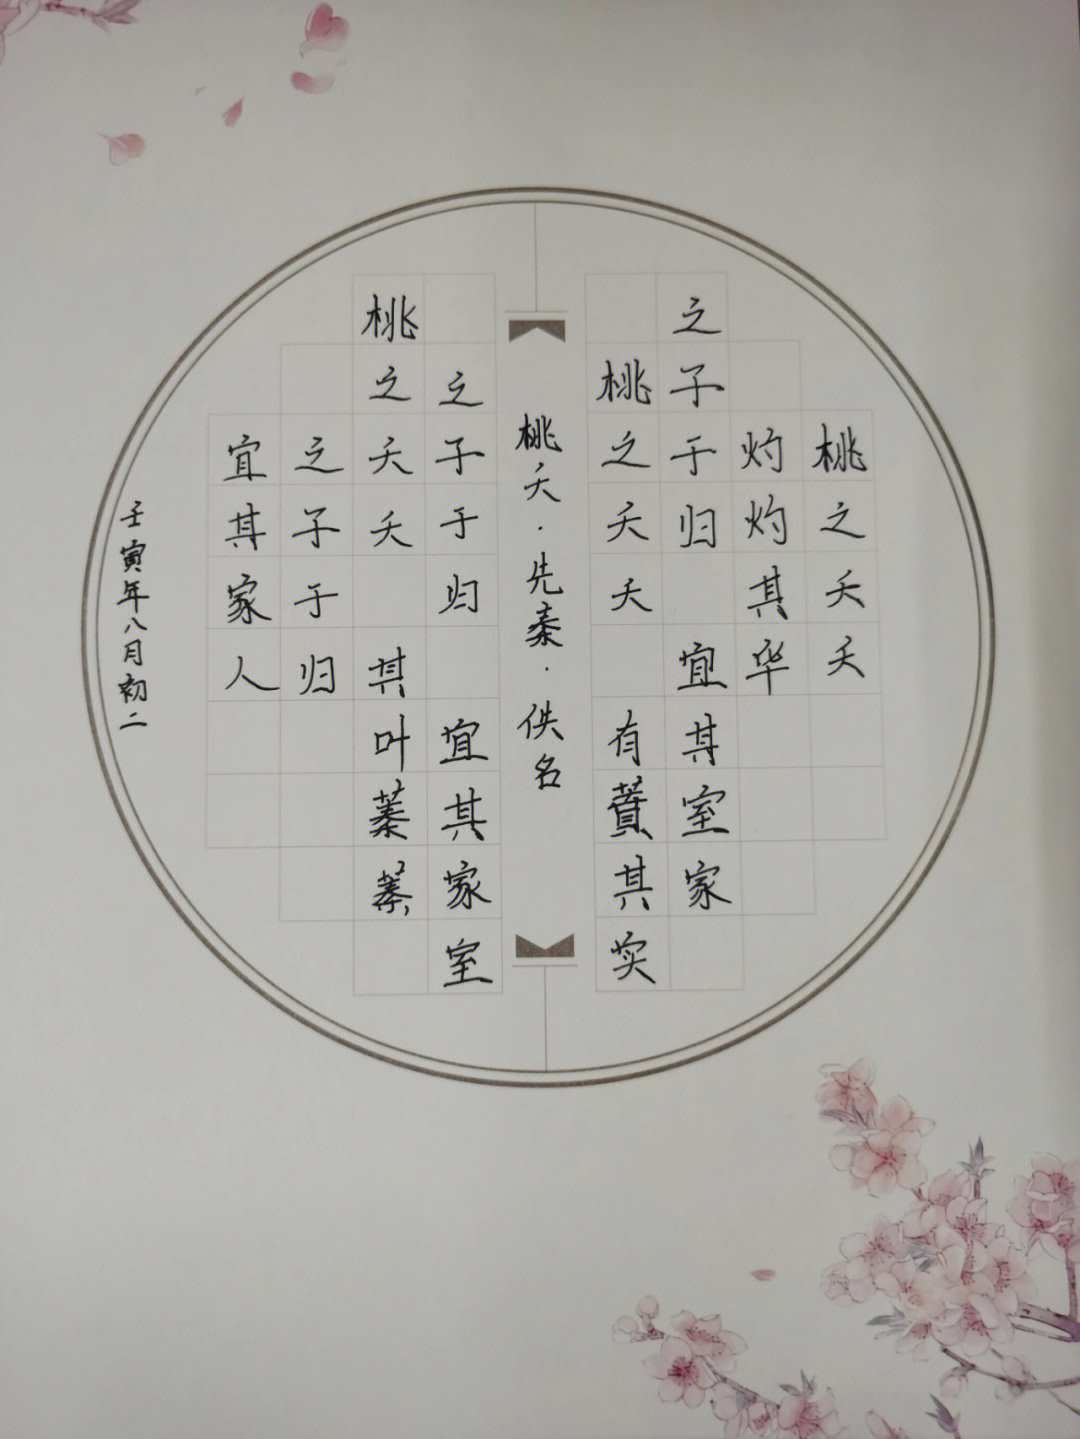 桃之夭夭
灼灼其华
之子于归 宜其室家
桃之夭夭 有蕡其实
桃夭·先秦·佚名
之子于归 宜其家室
桃之夭夭 其叶蓁蓁
之子于归
宜其家人
壬寅年八月初二